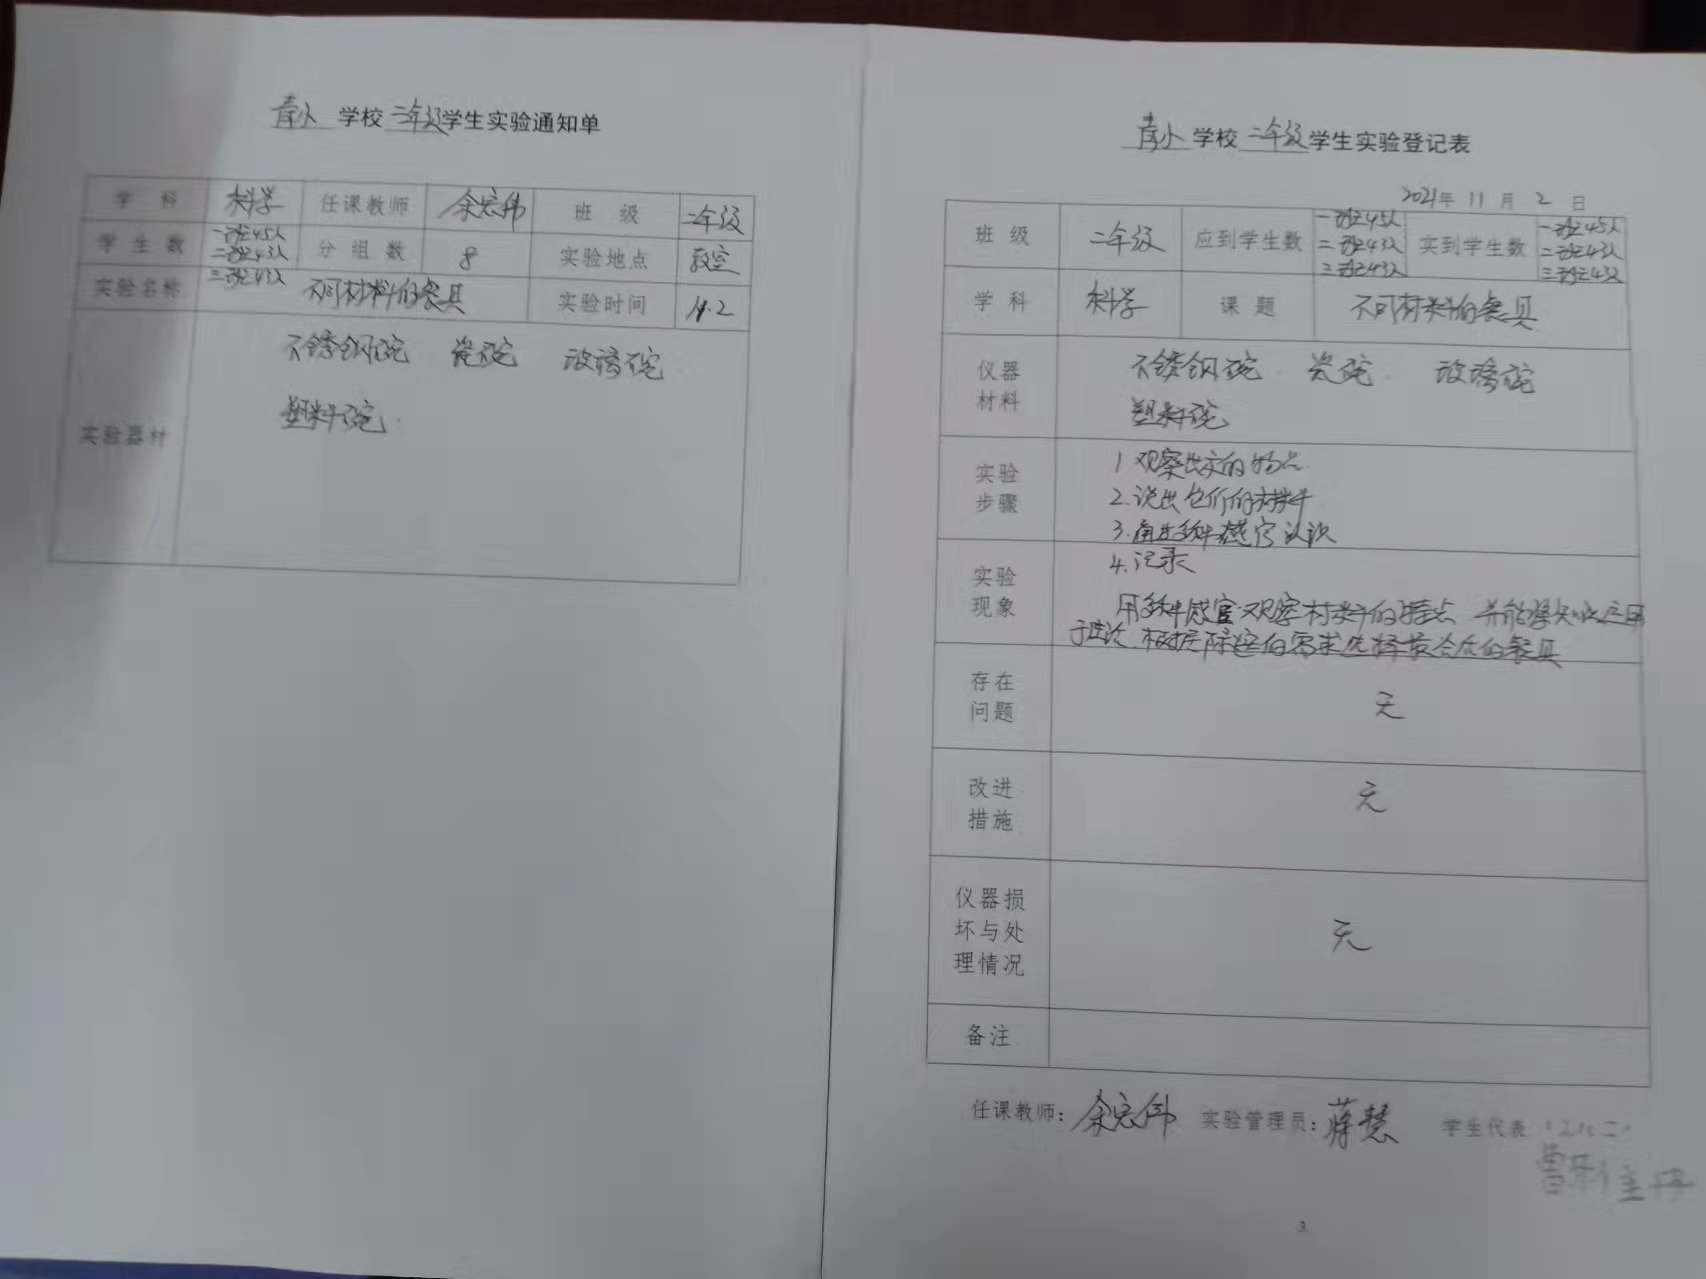 青小 学校 二年级 学生实验通知单
学 科 科学 任课教师 余宏伟 班 级 二年级
学生数 一班45人 二班43人 三班43人 分组数 8 实验地点 教室
实验名称 不同材料的餐具 实验时间 11.2
实验器材 不锈钢碗 瓷碗 玻璃碗
塑料碗
青小 学校 二年级 学生实验登记表
2021年 11 月 2 日
班 级 二年级 应到学生数 一班45人 二班43人 三班43人 实到学生数 一班45人 二班43人 三班43人
学 科 科学 课 题 不同材料的餐具
仪器材料 不锈钢碗 瓷碗 玻璃碗
塑料碗
实验步骤 1 观察
2.说出它们的材料
3.多种感官认识
4.记录
实验现象 用多种感官观察材料的特点 并能
根据 的需求选择最合适的餐具
存在问题 无
改进措施 无
仪器损坏与处理情况 无
备注
任课教师：余宏伟 实验管理员：蒋慧 学生代表
3